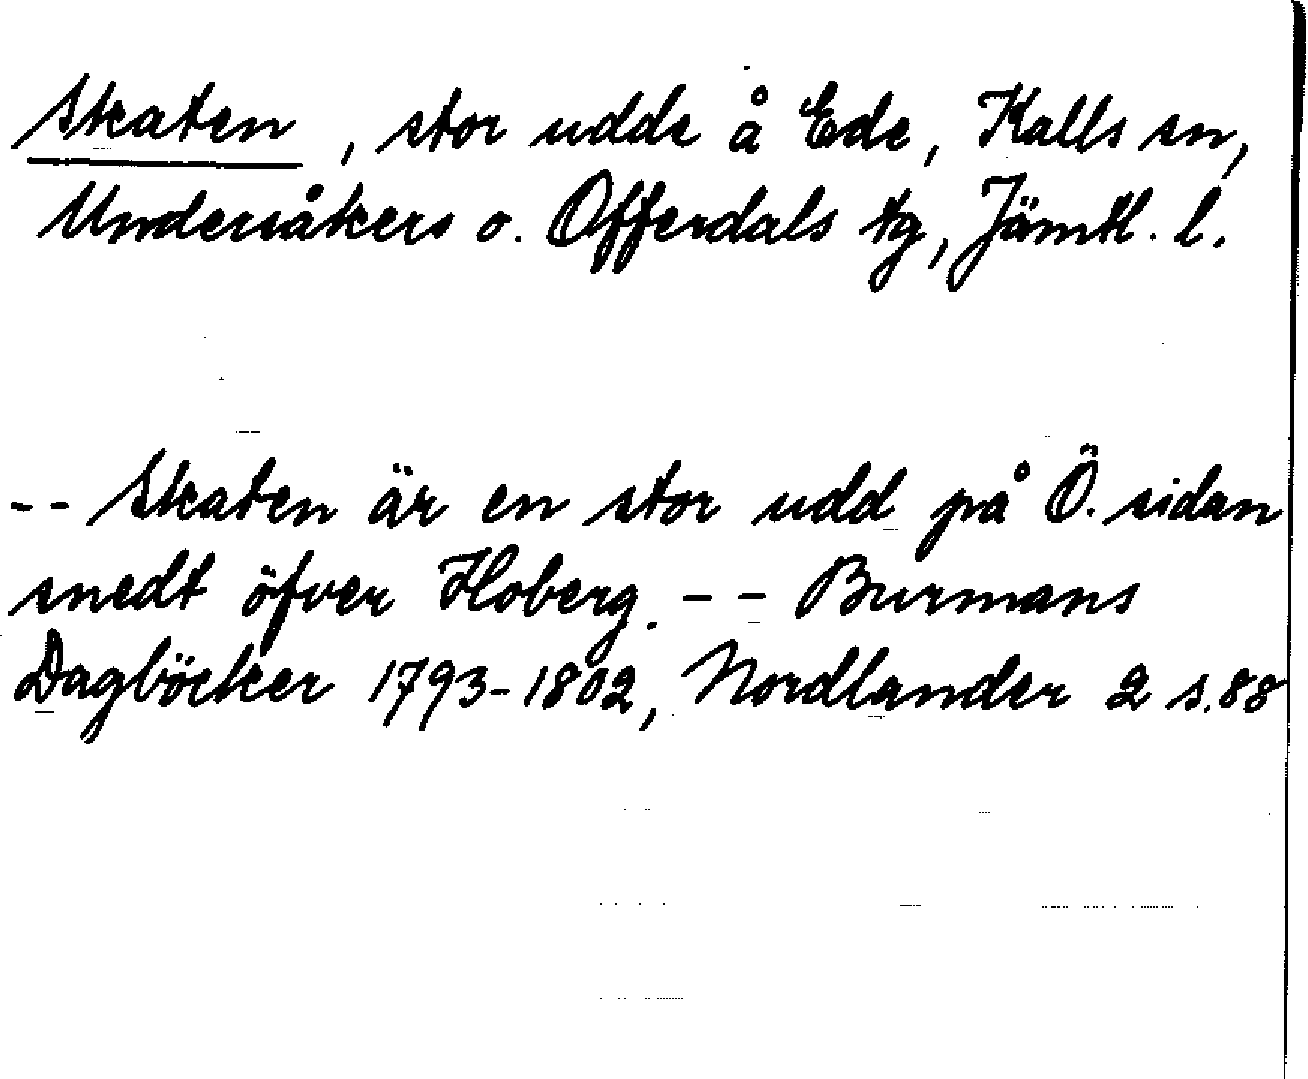 Skaten, stor udde å Ede, Kalls sn,
Undersåkers o. Offerdals tg, Jämtl. l.
-- Skaten är en stor udd på Ö. sidan
snedt öfver Hoberg. -- Burmans
Dagböcker 1793-1802, Nordlander 2 s. 88